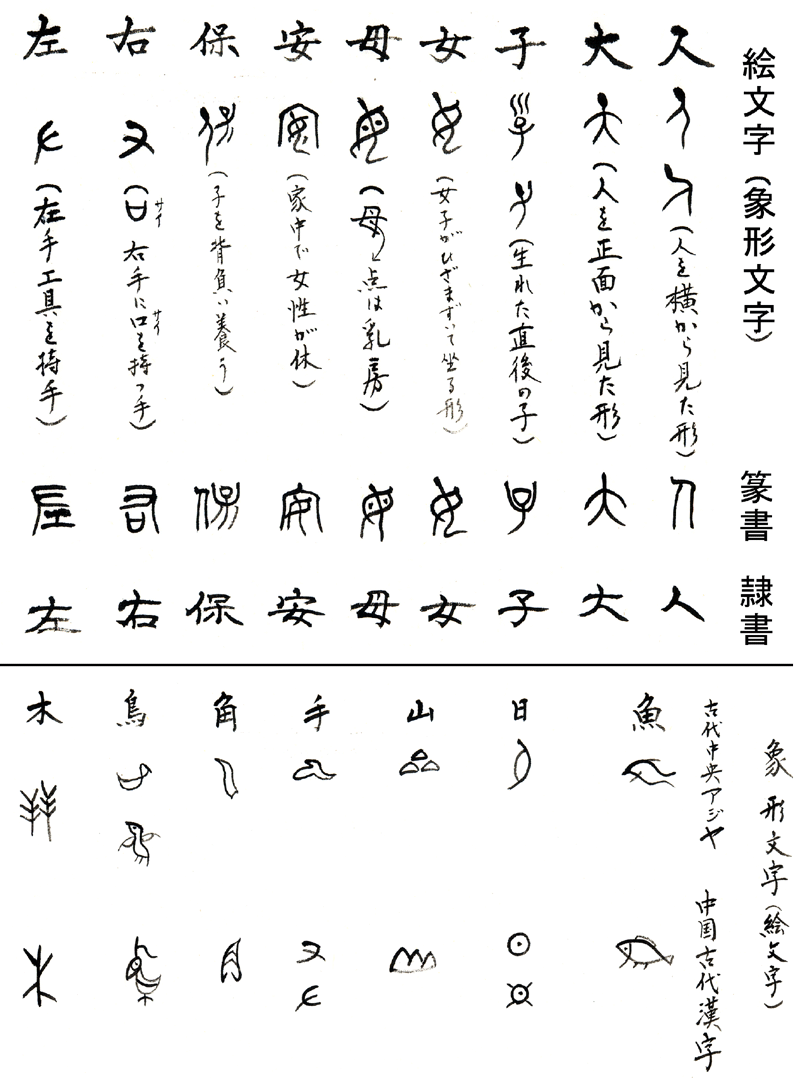 絵文字(象形文字) 篆書 隷書
人 (人を横から見た形) 人 人
大 (人を正面から見た形) 大 大
子 (生れた直後の子) 子 子
女 (女子がひざまずいて坐る形) 女 女
母 (母 点は乳房) 母 母
安 (家中で女性が休) 安 安
保 (子を背負い養う) 保 保
右 (口 右手に口を持つ手) 右 右
サイ
サイ
左 (左手工具を持手) 左 左
象形文字(絵文字)
古代中央アジヤ 中国古代漢字
魚
日
山
手
角
鳥
木